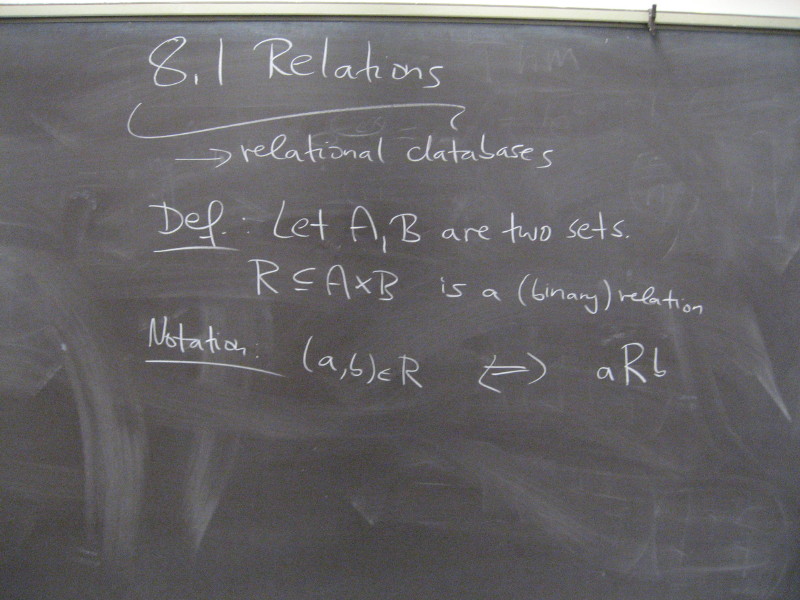 8.1 Relations
→ relational databases
Def.: Let A, B are two sets.
R ⊆ A×B is a (binary) relation
Notation: (a,b) ∈ R ⇔ aRb